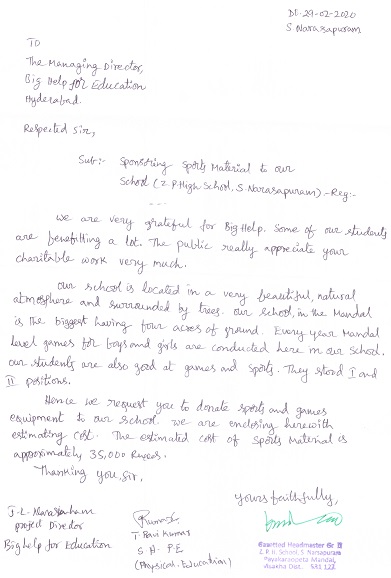 Dt. 29-02-2020
S. Narasapuram
To
The Managing Director,
Big Help for Education
Hyderabad.
Respected Sir,
Sub:- Sponsoring Sports Material to our
School (Z.P. High School, S. Narasapuram) - Reg:-
We are very grateful for Big Help. Some of our students
are benefitting a lot. The public really appreciate your
charitable work very much.
Our school is located in a very beautiful, natural
atmosphere and surrounded by trees. Our school, in the Mandal
is the biggest having four acres of ground. Every year Mandal
level games for boys and girls are conducted here in our school.
Our students are also good at games and sports. They stood I and
II positions.
Hence we request you to donate sports and games
equipment to our school. We are enclosing herewith
estimating cost. The estimated cost of sports material is
approximately 35,000 Rupees.
Thanking you, sir.
Yours faithfully,
Project Director
Big help for Education
T. Ravi Kumar
S.A. P.E
(Physical Education)
Gazetted Headmaster Gr II
Z. P. H. School, S. Narsapuram
Payakaraopeta Mandal,
Visakha Dist. 531 122